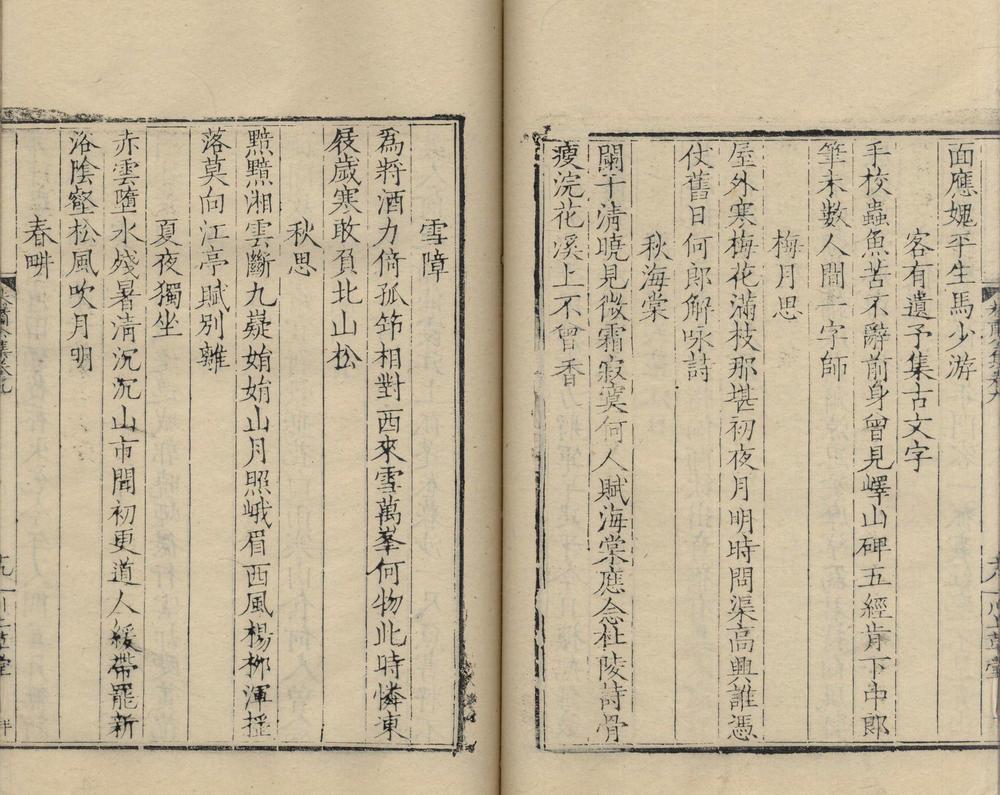 面應媿平生馬少游
客有遺予集古文字
手校蟲魚苦不辭前身曾見嶧山碑五經肯下中郎
筆未數人間一字師
梅月思
屋外寒梅花滿枝那堪初夜月明時問渠高興誰憑
仗舊日何郎解咏詩
秋海棠
闌干淸曉見微霜寂寞何人賦海棠應念杜陵詩骨
瘦浣花溪上不曾香
雪障
爲將酒力倚孤筇相對西來雪萬峯何物此時憐東
屐歲寒敢負北山松
秋思
黯黯湘雲斷九嶷娟娟山月照峨眉西風楊柳渾搖
落莫向江亭賦別離
夏夜獨坐
赤雲墮水殘暑淸沉沉山市聞初更道人緩帶罷新
浴陰壑松風吹月明
春畊